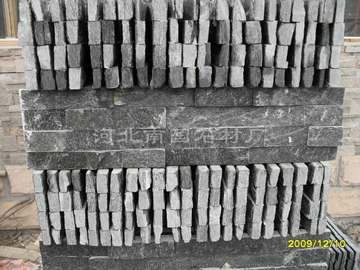 河北南国石材厂
2009/12/10